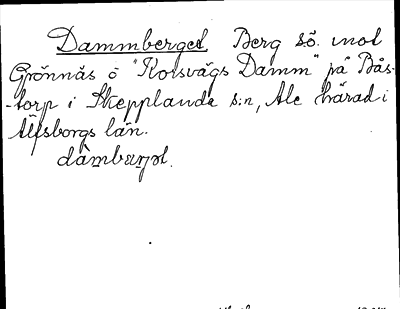 Dammberget. Berg sö. inot
Grönnås ö "Korsvägs Damm" på Bås-
-torp i Skepplanda s:n, Ale härad i
Älfsborgs län.